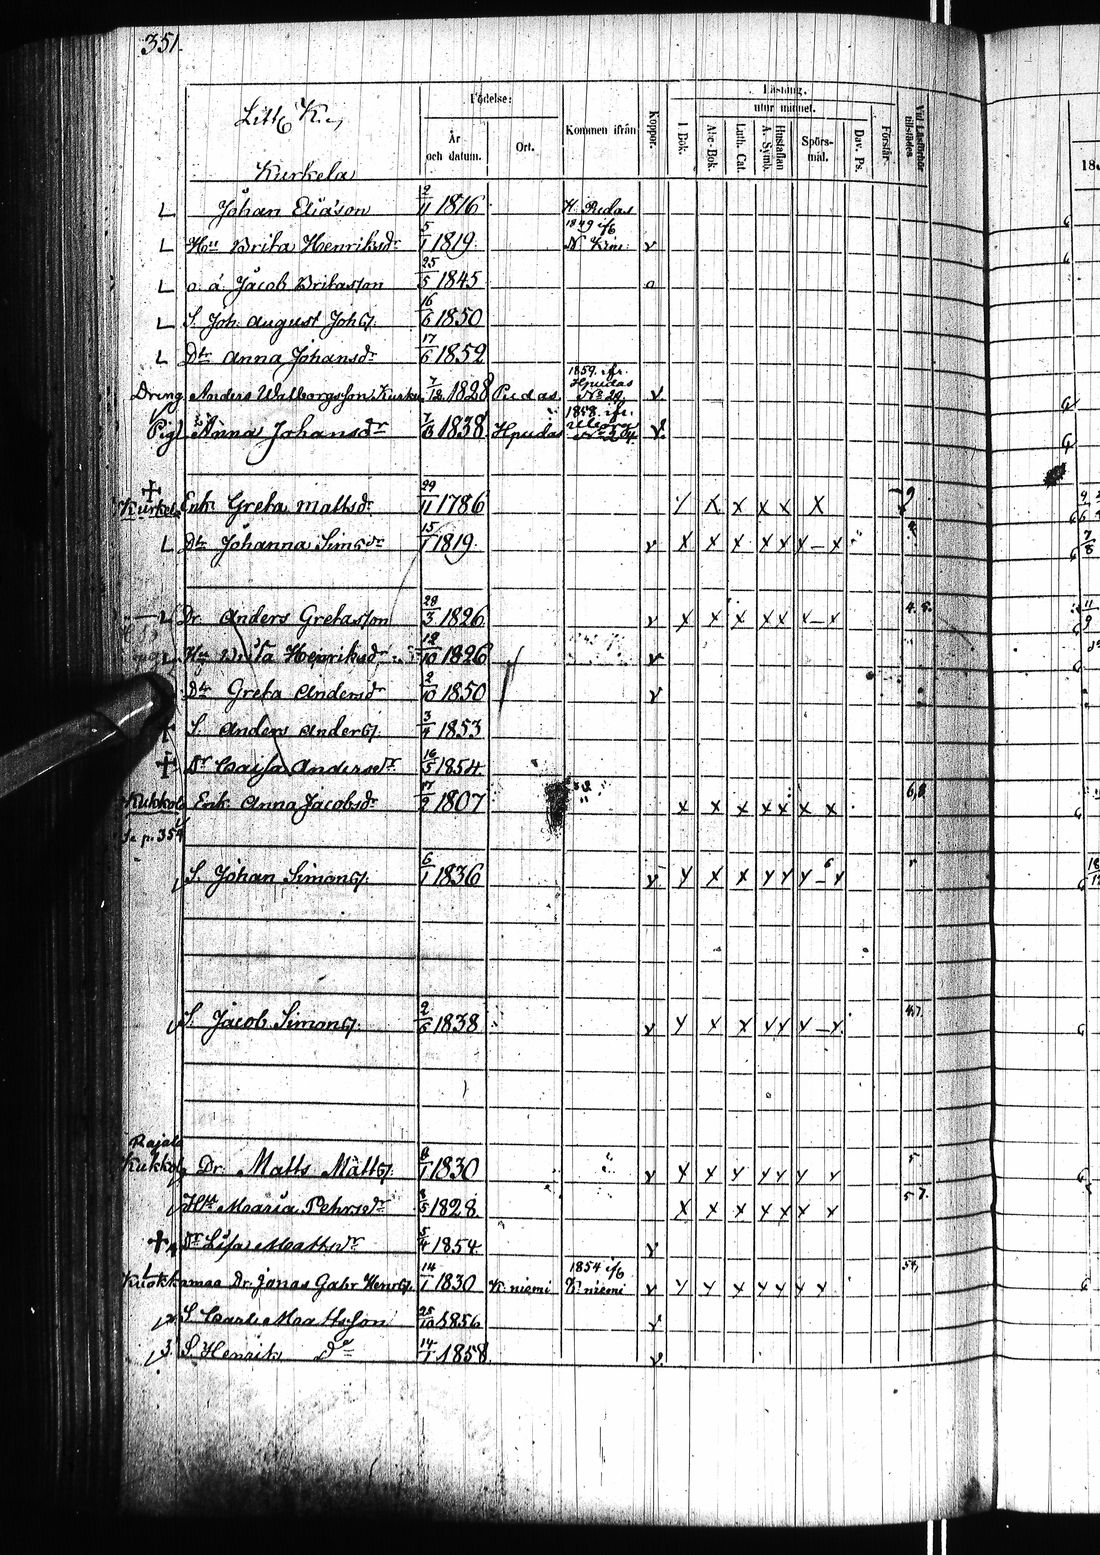 351.
Litt K.
Födelse:
År och datum.
Ort.
Kommen ifrån
Koppor.
Läsning.
utur minnet.
I Bok.
Abc-Bok.
Luth. Cat.
Hustaflan A. Symb.
Spörsmål.
Dav. Ps.
Förstår.
Vid Läsförhör tillstädes
18
Kurkela
L Johan Eliasson 2/11 1816
1849 i/6
L Hu Brita Henriksdr 5/1 1819 v
L o. ä. Jacob Britasson 25/5 1845 o
L S. Joh. August Joh 16/6 1850
L Dtr Anna Johansdr 17/6 1852
1859 ifr. Hpudas No 29.
Dreng Anders Walborgsson Kurke 7/12 1828 Pudas v
1858 ifr. Uleåborg
Pig Anna Johansdr 1838 Hpudas v
Kurkela Enk. Greta Mattsdr 29/11 1786 x x x x x
L Dtr Johanna Simsdr 15/1 1819 v x x x x x x – x
L Dr. Anders Gretasson 28/3 1826 v x x x x x x – x 4. 5.
L Hu Brita Henriksdr 12/10 1826 v
Dtr Greta Andersdr 2/10 1850 v
S. Anders Anders 3/4 1853
Dr Caisa Andersdr 16/5 1854
Kukkola Enk. Anna Jacobsdr 17/2 1807 x x x x x x x 6,8
Se p. 354
S. Johan Simons 6/1 1836 v x x x x x x – x
S. Jacob Simons 2/6 1838 v x x x x x x – x 4,7.
Rajala
Kukkola Dr. Matts Matts 8/1 1830 v x x x x x x x 5
Hu Maria Pehrsdr 8/5 1828 x x x x x x x 5 7.
Dr Lisa Mattsdr 5/4 1854 v
1854 i/6
Kuokkamaa Dr. Jonas Gabr Henr 14/1 1830 K:niemi K:niemi v x x x x x x x
2 S Carl Mattsson 25/10 1856 v
3 S. Henrik Do 14/1 1858 v